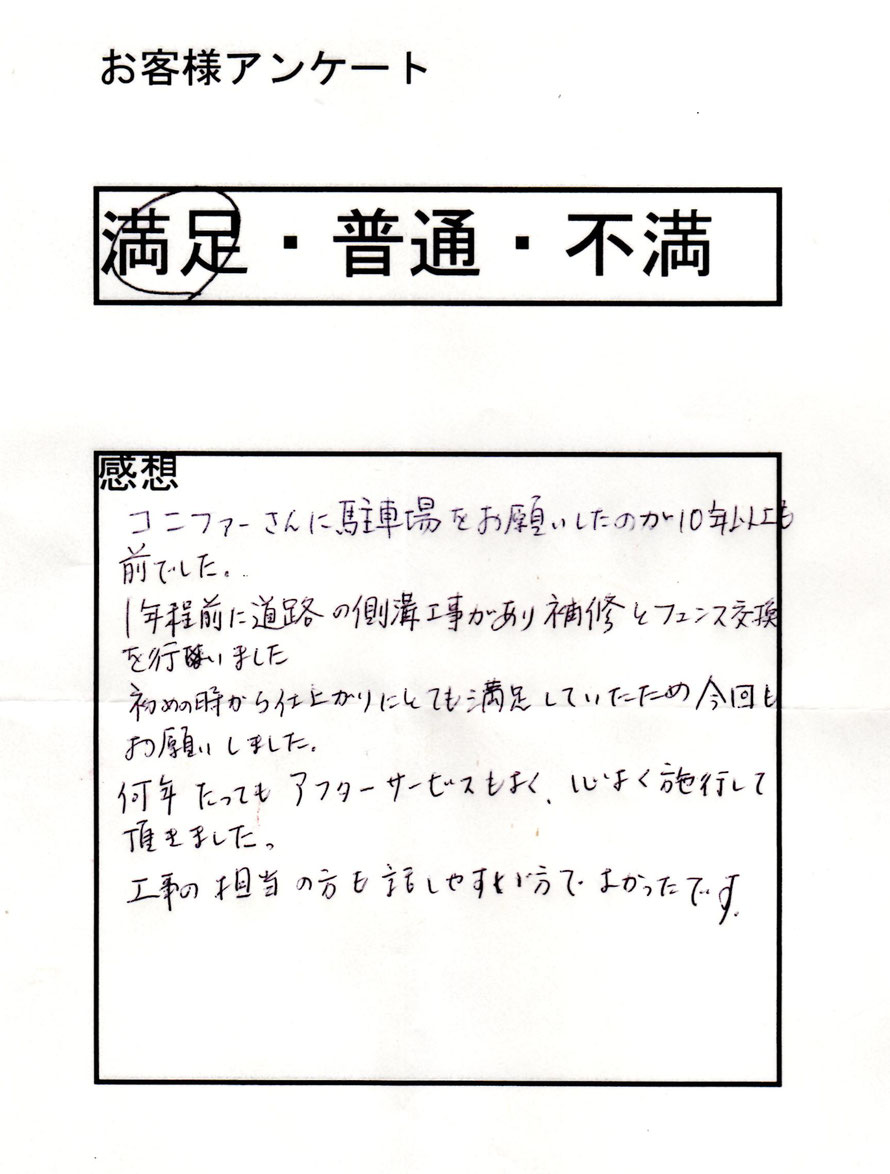 お客様アンケート
満足・普通・不満
感想
コニファーさんに駐車場をお願いしたのが10年以上も
前でした。
1年程前に道路の側溝工事があり補修とフェンス交換
を行いました
初めの時から仕上がりにとても満足していたため今回も
お願いしました。
何年たってもアフターサービスもよく、心よく施行して
頂きました。
工事の担当の方も話しやすい方でよかったです。